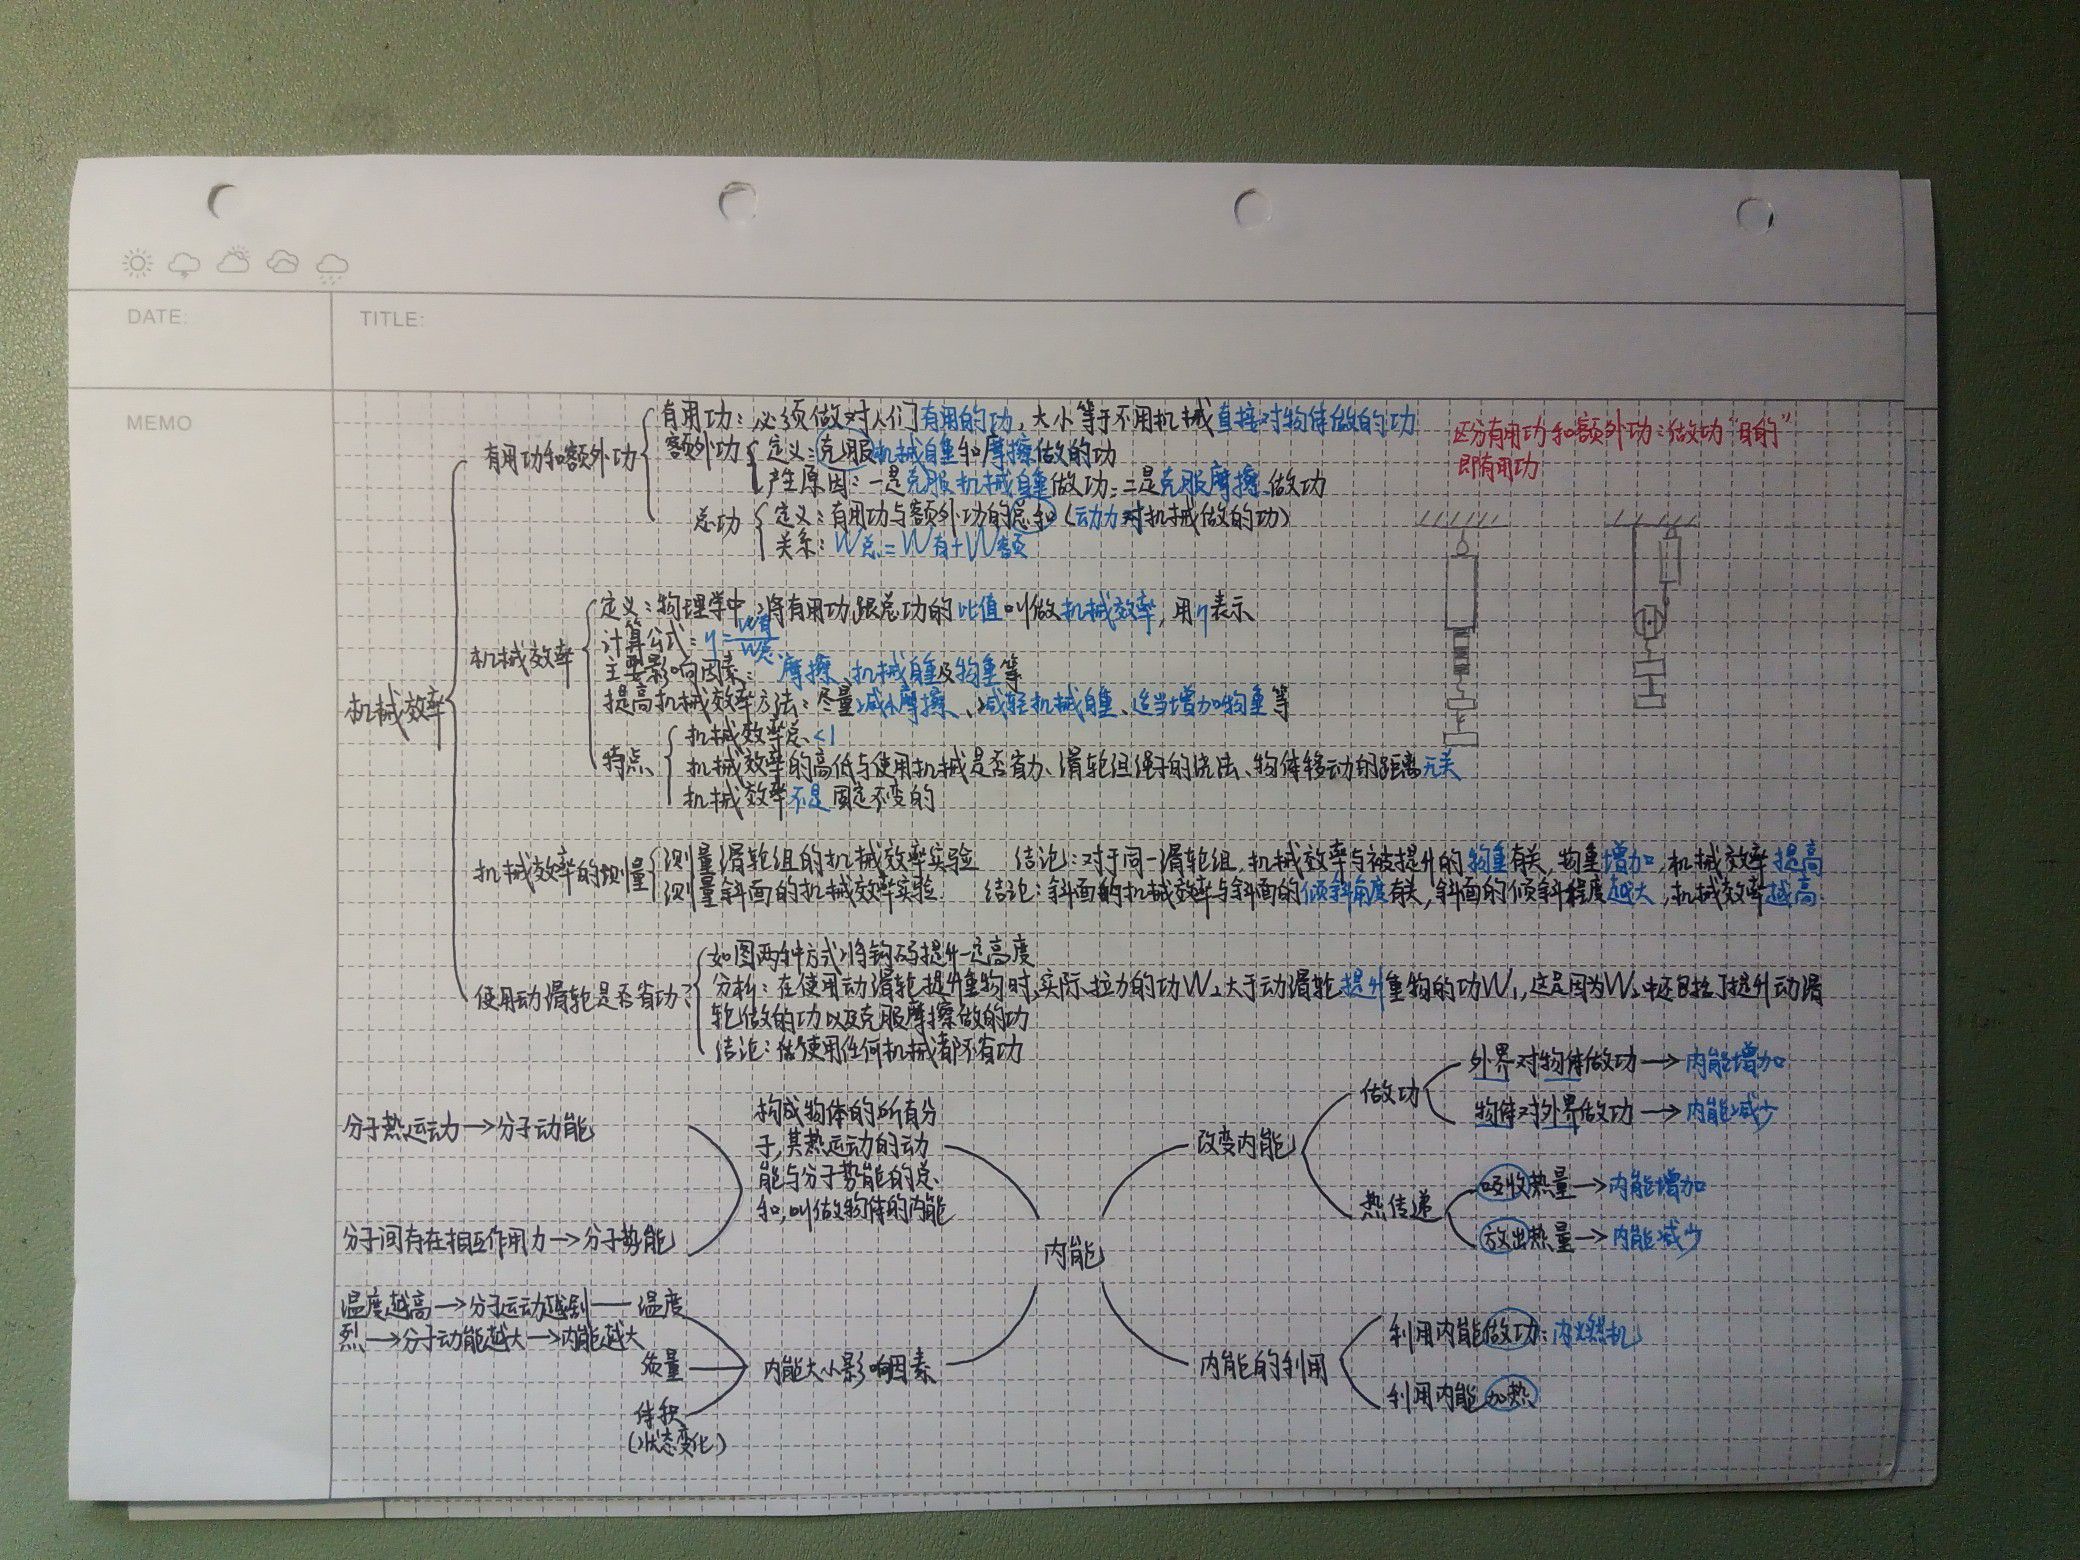 DATE:
TITLE:
MEMO
机械效率
有用功和额外功
有用功：必须做对人们有用的功，大小等于不用机械直接对物体做的功
额外功
定义：克服机械自重和摩擦做的功
产生原因：一是克服机械自重做功；二是克服摩擦做功
总功
定义：有用功与额外功的总和（动力对机械做的功）
关系：W总=W有+W额
区分有用功和额外功：做功“目的”
即有用功
机械效率
定义：物理学中，将有用功跟总功的比值叫做机械效率，用η表示
计算公式：η=W有/W总
主要影响因素：摩擦、机械自重及物重等
提高机械效率方法：尽量减小摩擦、减轻机械自重、适当增加物重等
特点
机械效率总<1
机械效率的高低与使用机械是否省力、滑轮组绳子的绕法、物体移动的距离无关
机械效率不是固定不变的
机械效率的测量
测量滑轮组的机械效率实验 结论：对于同一滑轮组，机械效率与被提升的物重有关，物重增加，机械效率提高
测量斜面的机械效率实验 结论：斜面的机械效率与斜面的倾斜角度有关，斜面的倾斜程度越大，机械效率越高
使用动滑轮是否省功？
如图两种方式将钩码提升一定高度
分析：在使用动滑轮提升重物时，实际拉力的功W₂大于动滑轮提升重物的功W₁，这是因为W₂中还包括了提升动滑
轮做的功以及克服摩擦做的功
结论：使用任何机械都不省功
内能
构成物体的所有分
子，其热运动的动
能与分子势能的总
和，叫做物体的内能
分子热运动→分子动能
分子间存在相互作用力→分子势能
内能大小影响因素
温度
温度越高→分子运动越剧
烈→分子动能越大→内能越大
质量
体积
（状态变化）
改变内能
做功
外界对物体做功→内能增加
物体对外界做功→内能减少
热传递
吸收热量→内能增加
放出热量→内能减少
内能的利用
利用内能做功：内燃机
利用内能加热